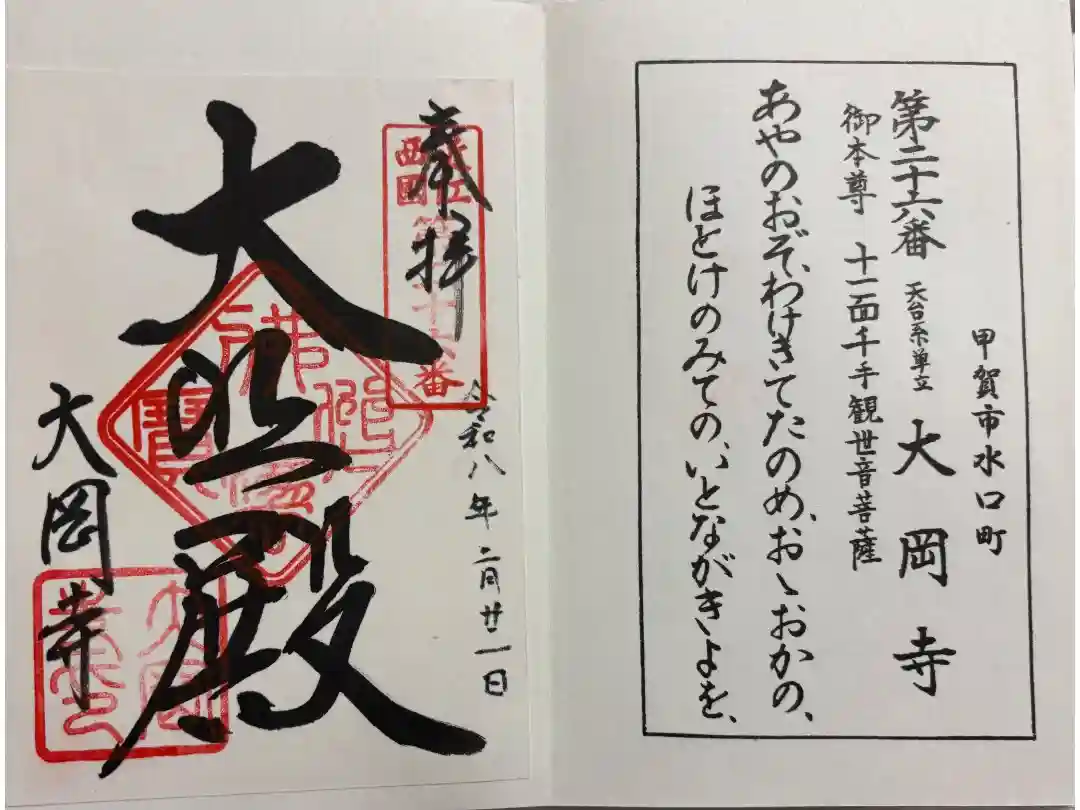 甲賀市水口町
第二十六番 天台系単立 大岡寺
御本尊 十一面千手観世音菩薩
あやのおぞ、わけきてたのめ、おゝおかの、
ほとけのみての、いとながきよを、
奉拝
近江西国第二十六番
令和八年二月廿一日
大悲殿
大岡寺
佛法僧寶